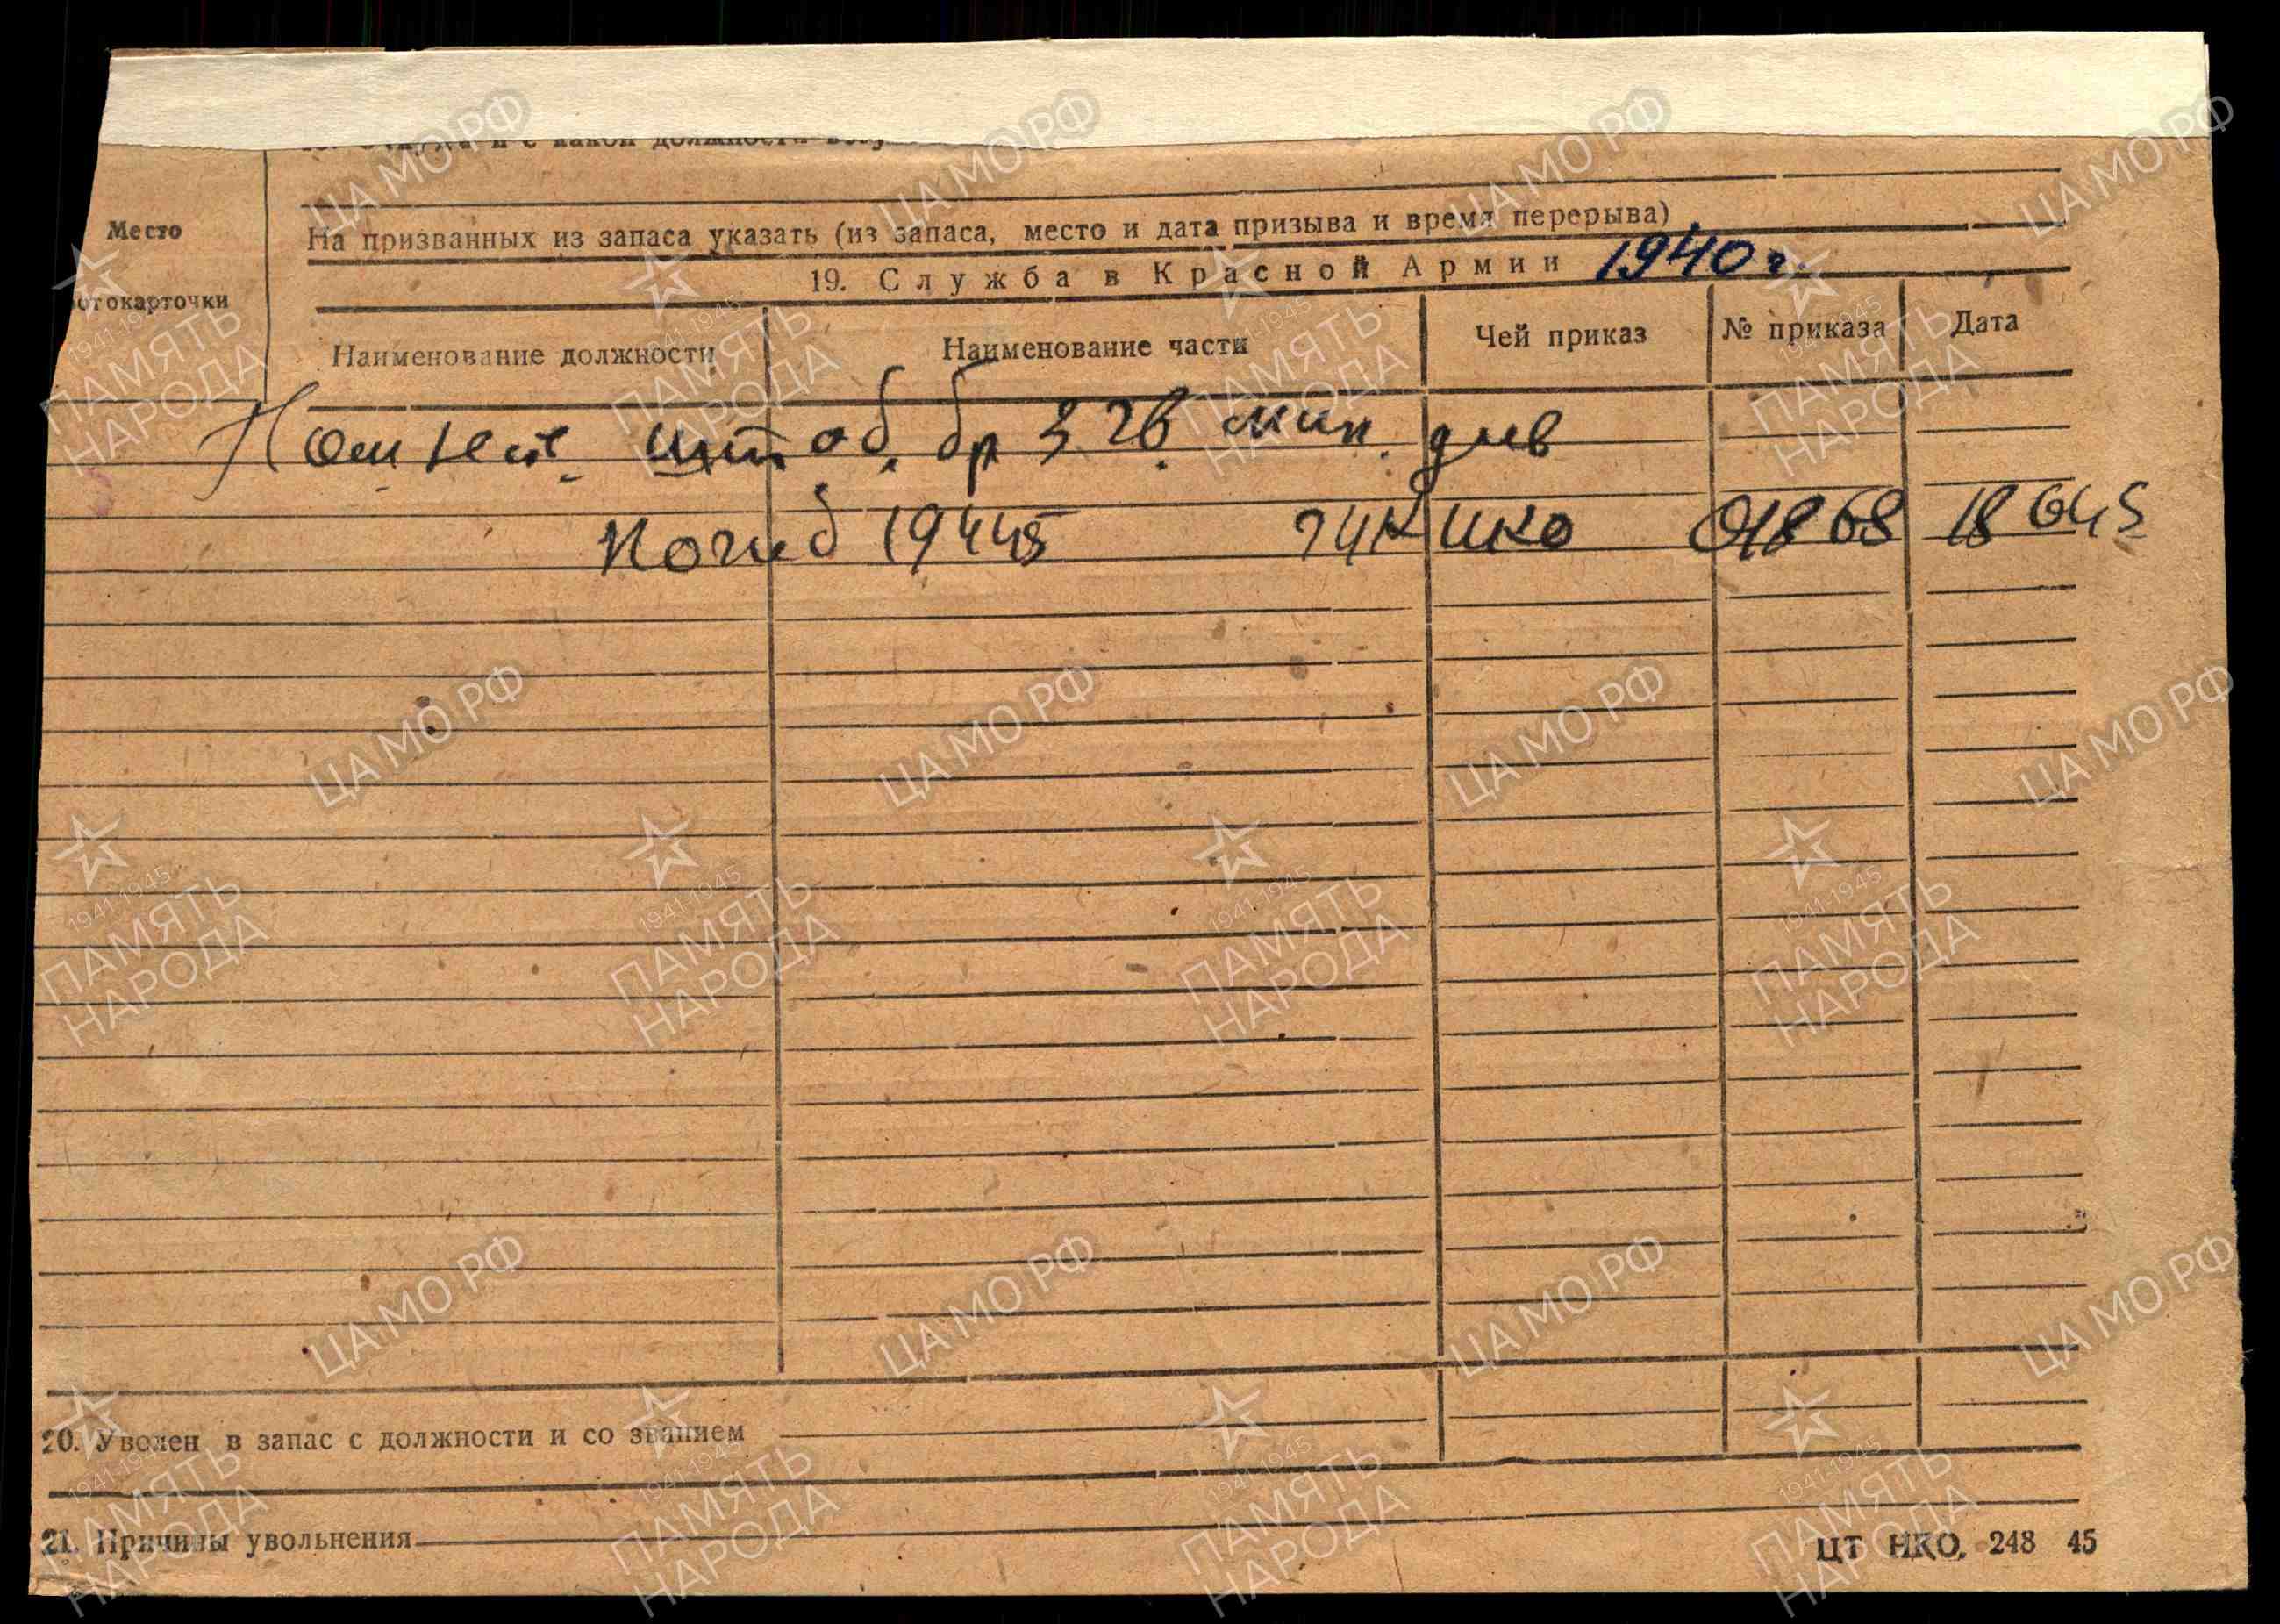 с какой должности
Место
фотокарточки
На призванных из запаса указать (из запаса, место и дата призыва и время перерыва)
19. Служба в Красной Армии 1940 г.
Наименование должности Наименование части Чей приказ № приказа Дата
Пом нач. штаб. бр 3 гв мин. див
Погиб 19445 ГУК НКО 01868 18 6 45
20. Уволен в запас с должности и со званием
21. Причины увольнения
ЦТ НКО, 248 45
ЦА МО РФ
1941-1945
ПАМЯТЬ
НАРОДА